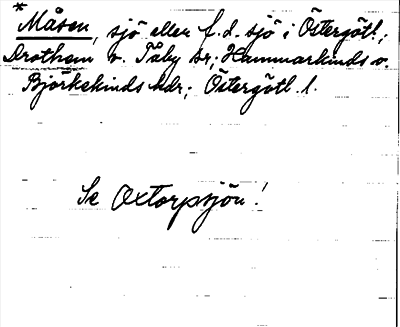 *
Måsen, sjö eller f.d. sjö i Östergötl.;
Drothem o. Tåby sr; Hammarkinds o.
Björkekinds hdr; Östergötl. l.
Se Oxtorpsjön!